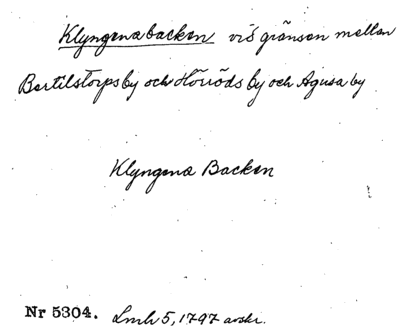 Klyngenabacken vid gränsen mellan
Bertilstorps by och Hörröds by och Agusa by
Klyngena Backen
Nr 5304. Lmh 5, 1797 avskr.